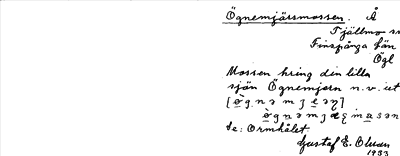 Ögnemjärssmossen. Å
Tjällmo sn
Finspånga län
Ögl
Mossen kring den lilla
sjön Ögnemjern n.v. ut
Se: Ormhålet
Gustaf E. Olsson
1933